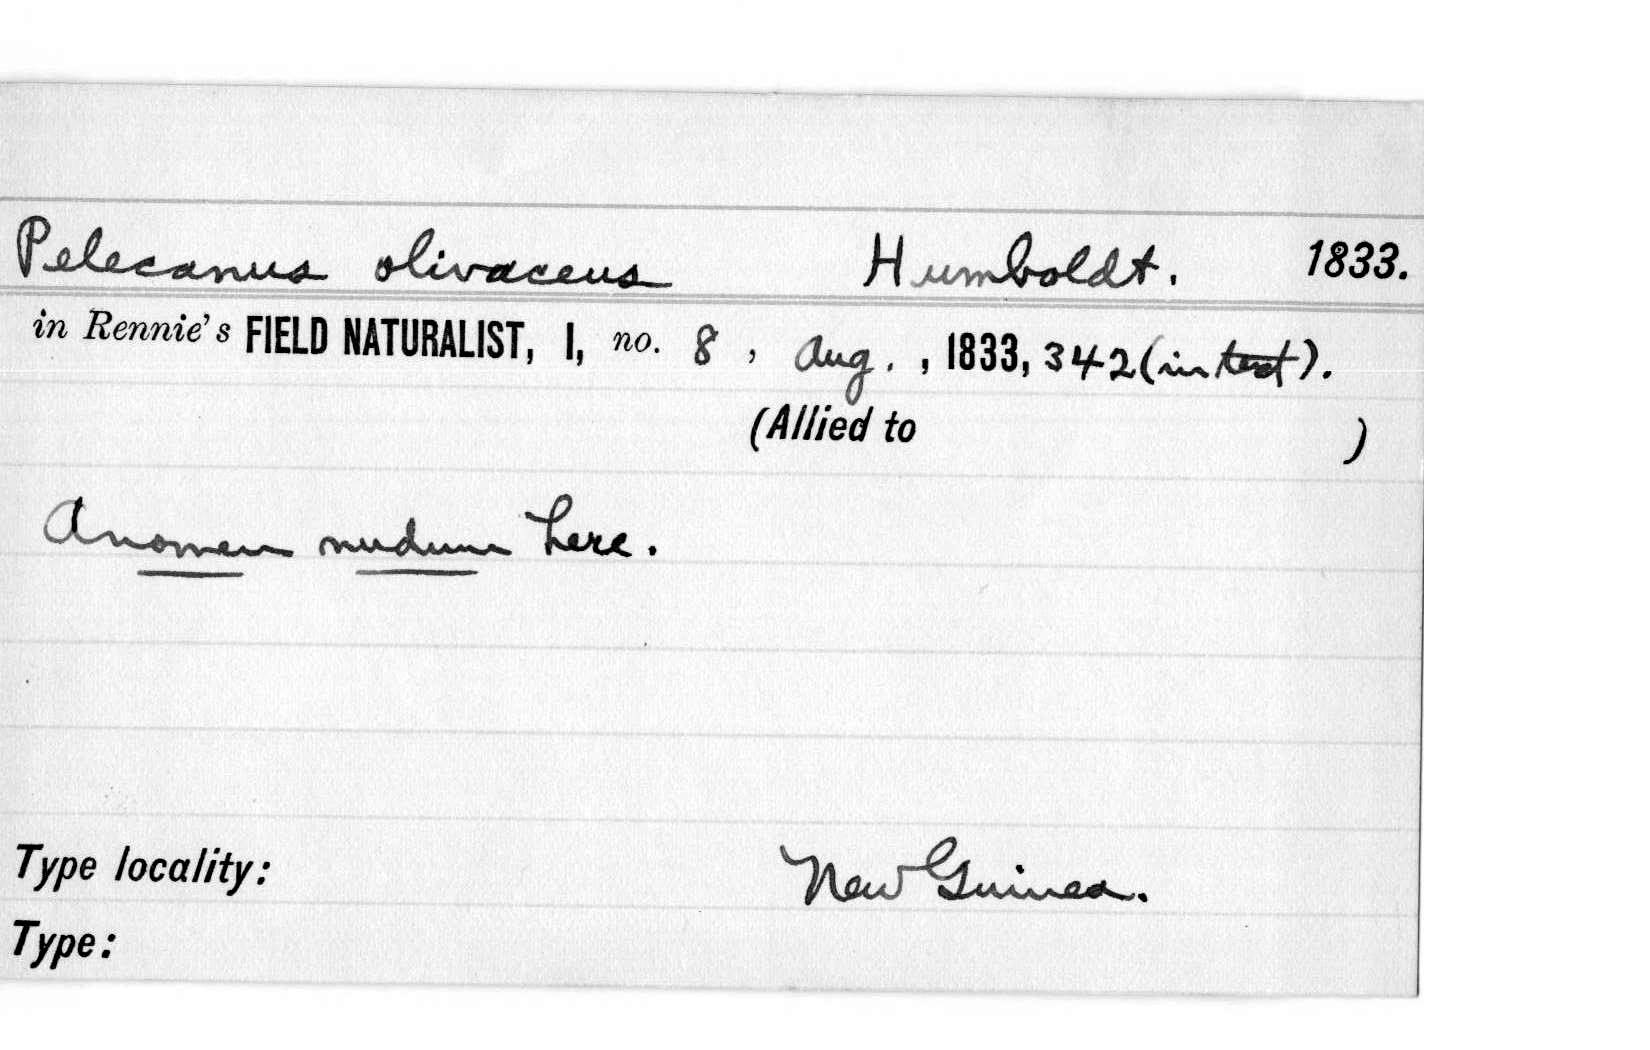 Pelecanus olivaceus Humboldt. 1833.
in Rennie's FIELD NATURALIST, I, no. 8, Aug., 1833, 342 (in text).
(Allied to )
A nomen nudum here.
Type locality: New Guinea.
Type: